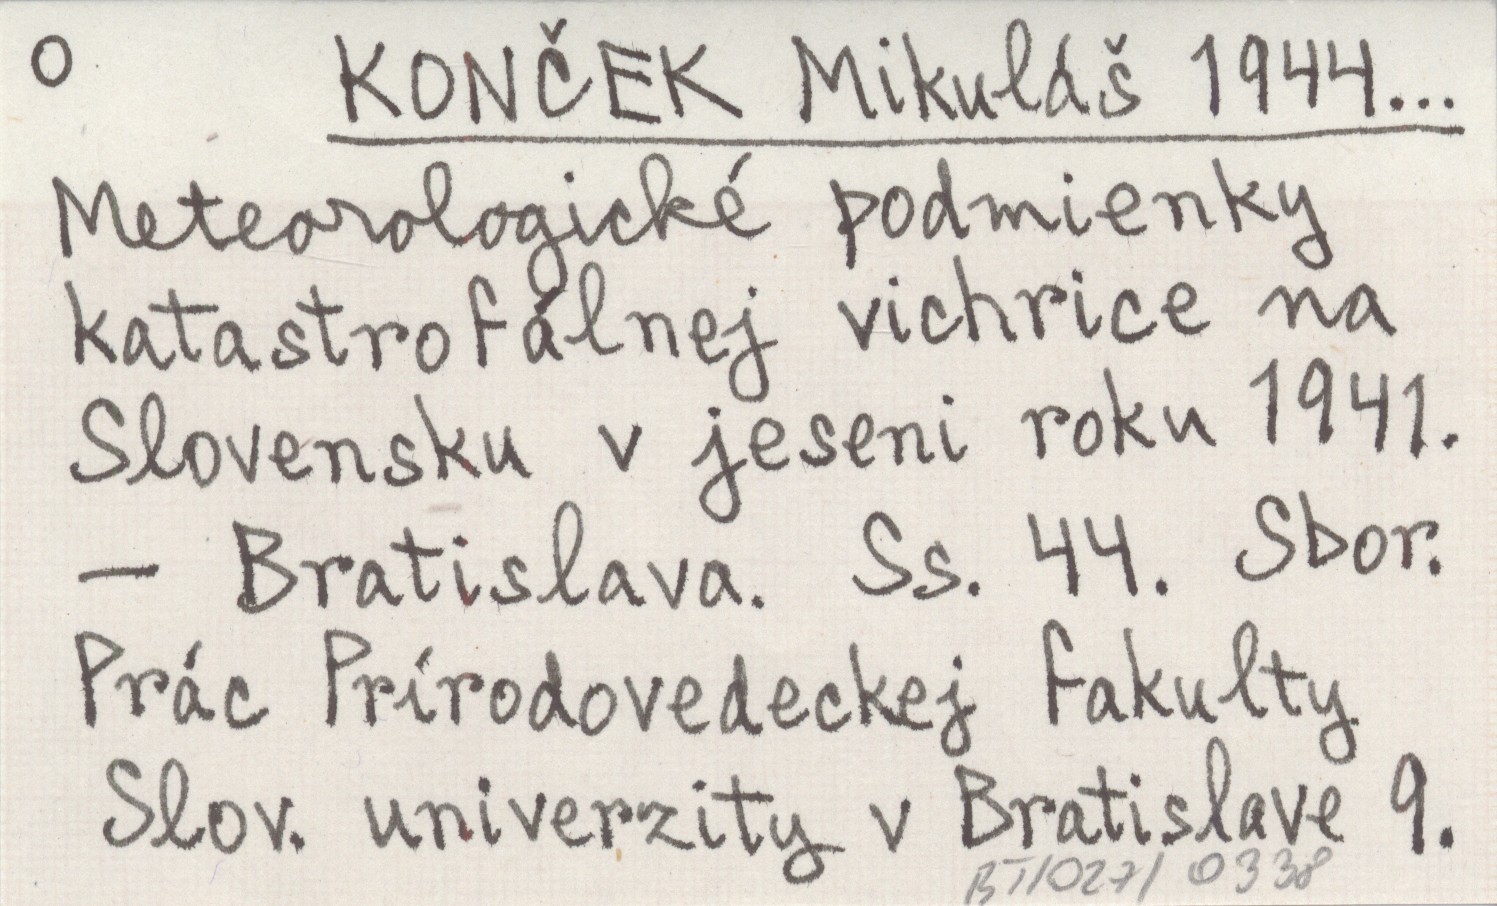 O KONČEK Mikuláš 1944...
Meteorologické podmienky
katastrofálnej vichrice na
Slovensku v jeseni roku 1941.
— Bratislava. Ss. 44. Sbor.
Prác Prírodovedeckej fakulty
Slov. univerzity v Bratislave 9.
BT/027/ 0338